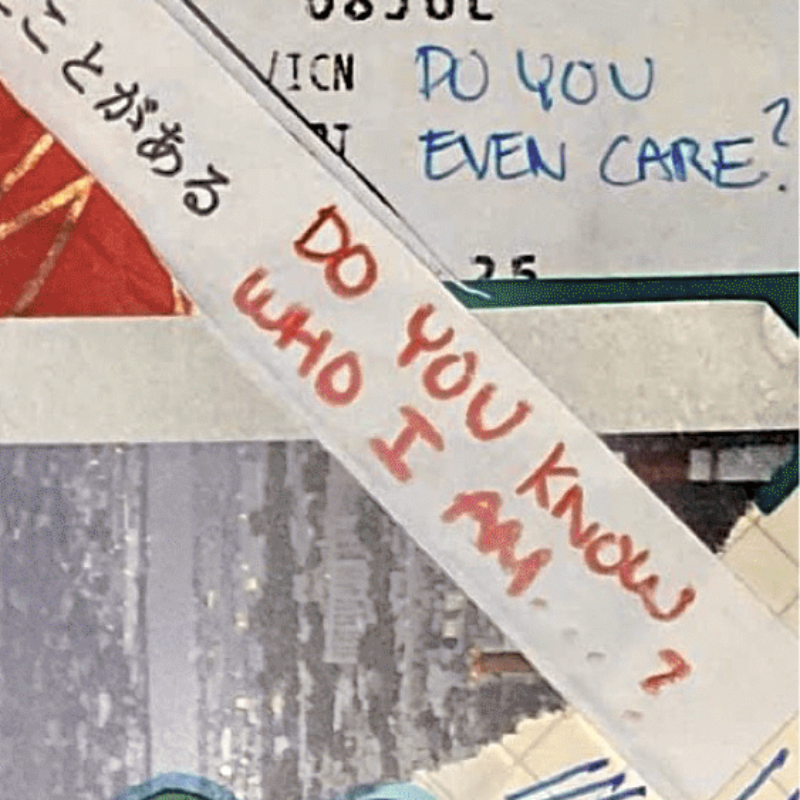 08JUL
/ICN
DO YOU
EVEN CARE?
25
ことがある
DO YOU KNOW
WHO I AM...?